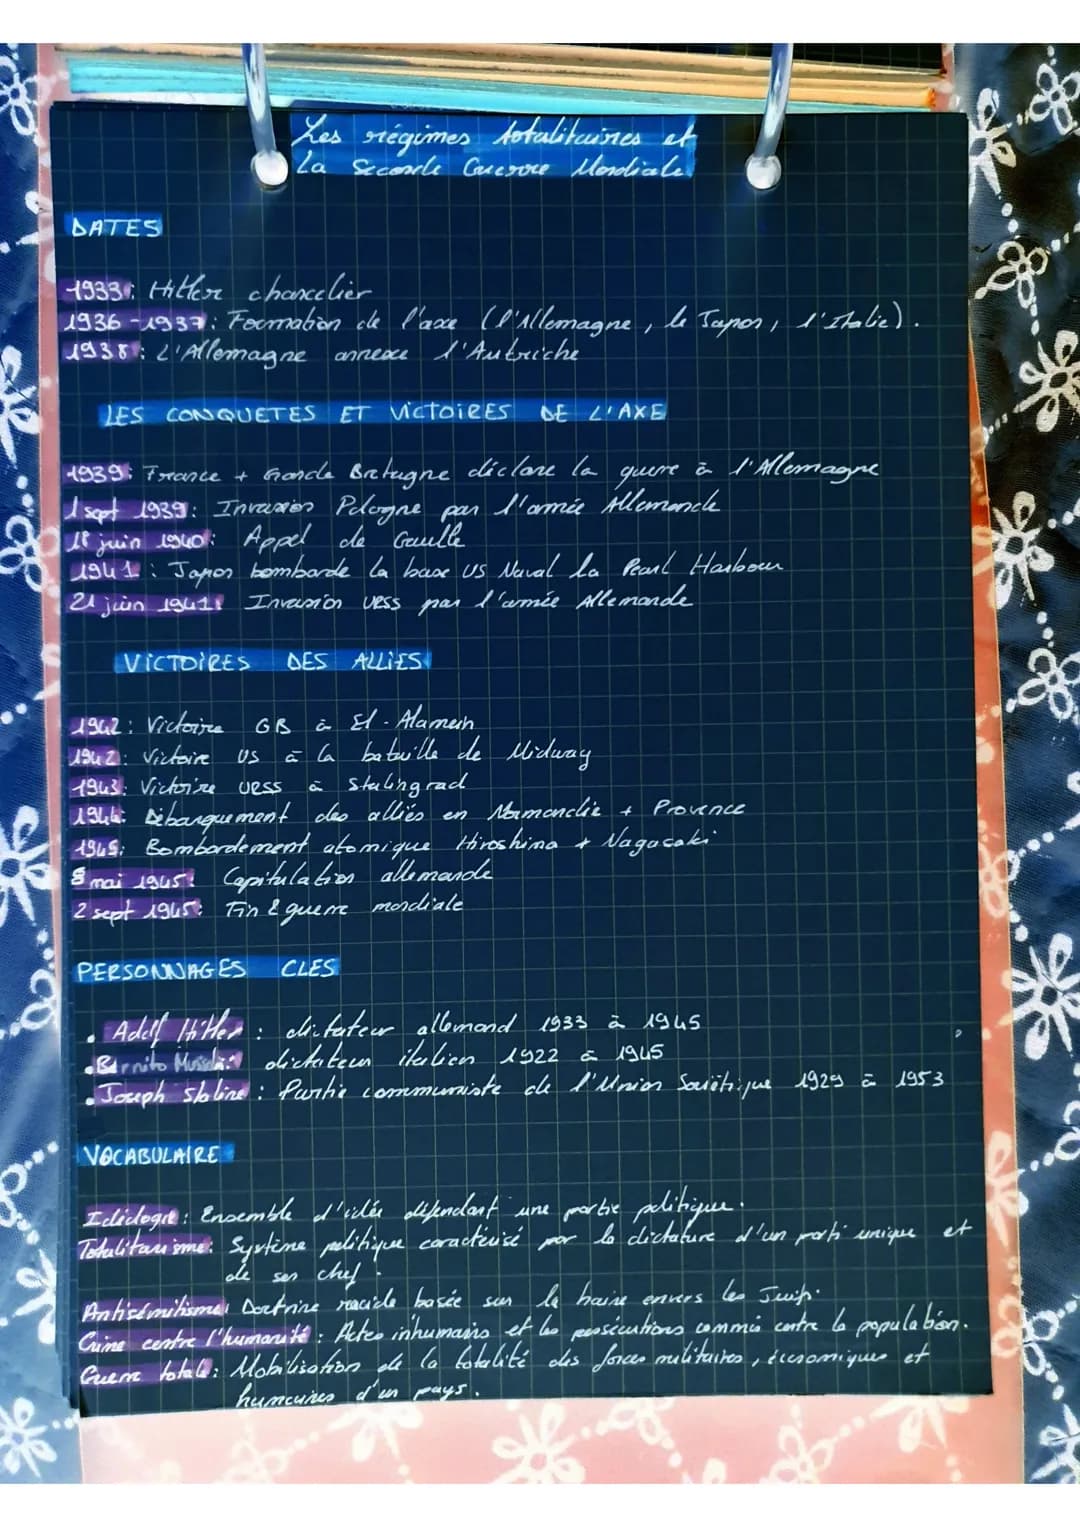 Les régimes totalitaires et
La Seconde Guerre Mondiale
DATES
1933: Hitler chancelier
1936-1937: Formation de l'axe (l'Allemagne, le Japon, l'Italie).
1938: L'Allemagne annexe l'Autriche
LES CONQUETES ET VICTOIRES DE L'AXE
1939: France + Grande Bretagne déclare la guerre à l'Allemagne
1 sept 1939: Invasion Pologne par l'armée Allemande
18 juin 1940: Appel de Gaulle
1941: Japon bombarde la base US Naval la Pearl Harbour
21 juin 1941: Invasion URSS par l'armée Allemande
VICTOIRES DES ALLIES
1942: Victoire GB à El-Alamein
1942: Victoire US à la bataille de Midway
1943: Victoire URSS à Stalingrad
1944: Débarquement des alliés en Normandie + Provence
1945: Bombardement atomique Hiroshima + Nagasaki
8 mai 1945: Capitulation allemande
2 sept 1945: Fin 2 guerre mondiale
PERSONNAGES CLES
• Adolf Hitler: dictateur allemand 1933 à 1945
• Bernito Mussolini: dictateur italien 1922 à 1945
• Joseph staline: Partie communiste de l'Union Soviétique 1929 à 1953
VOCABULAIRE
Idéologie: Ensemble d'idée défendant une partie politique.
Totalitarisme: Système politique caractérisé par la dictature d'un parti unique et
de son chef.
Antisémitisme: Doctrine raciale basée sur la haine envers les Juifs.
Crime contre l'humanité: Actes inhumains et les persécutions commis contre la population.
Guerre totale: Mobilisation de la totalité des forces militaires, économiques et
humaines d'un pays.